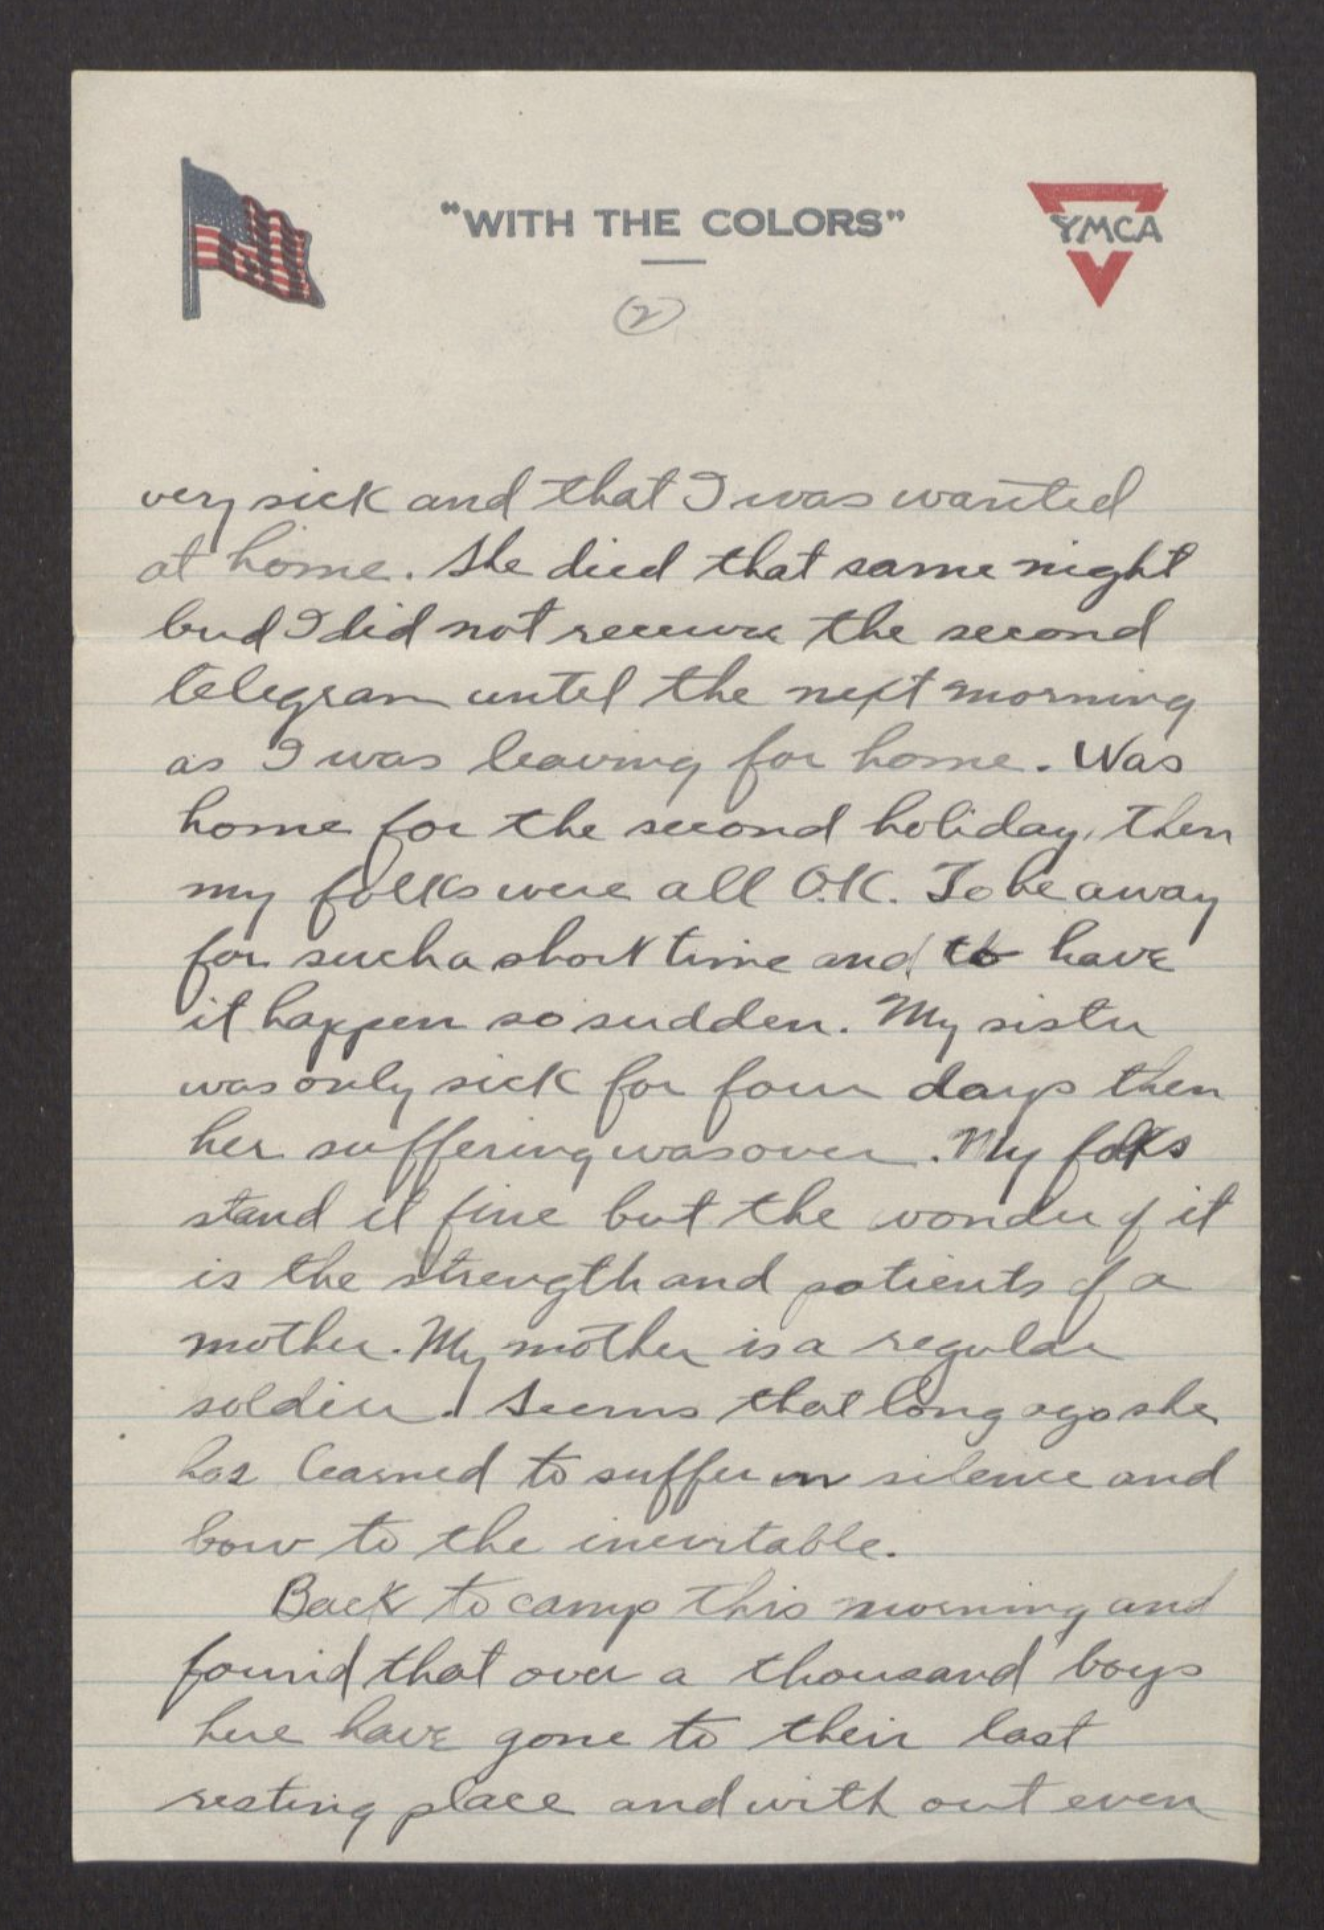 "WITH THE COLORS"
YMCA
2
very sick and that I was wanted
at home. She died that same night
bud I did not receive the second
telegram until the next morning
as I was leaving for home. Was
home for the second holiday, then
my folks were all O.K. To be away
for such a short time and to have
it happen so sudden. My sister
was only sick for four days then
her suffering was over. My folks
stand it fine but the wonder of it
is the strength and patients of a
mother. My mother is a regular
soldier. Seems that long ago she
has learned to suffer in silence and
bow to the inevitable.
Back to camp this morning and
found that over a thousand boys
here have gone to their last
resting place and with out even